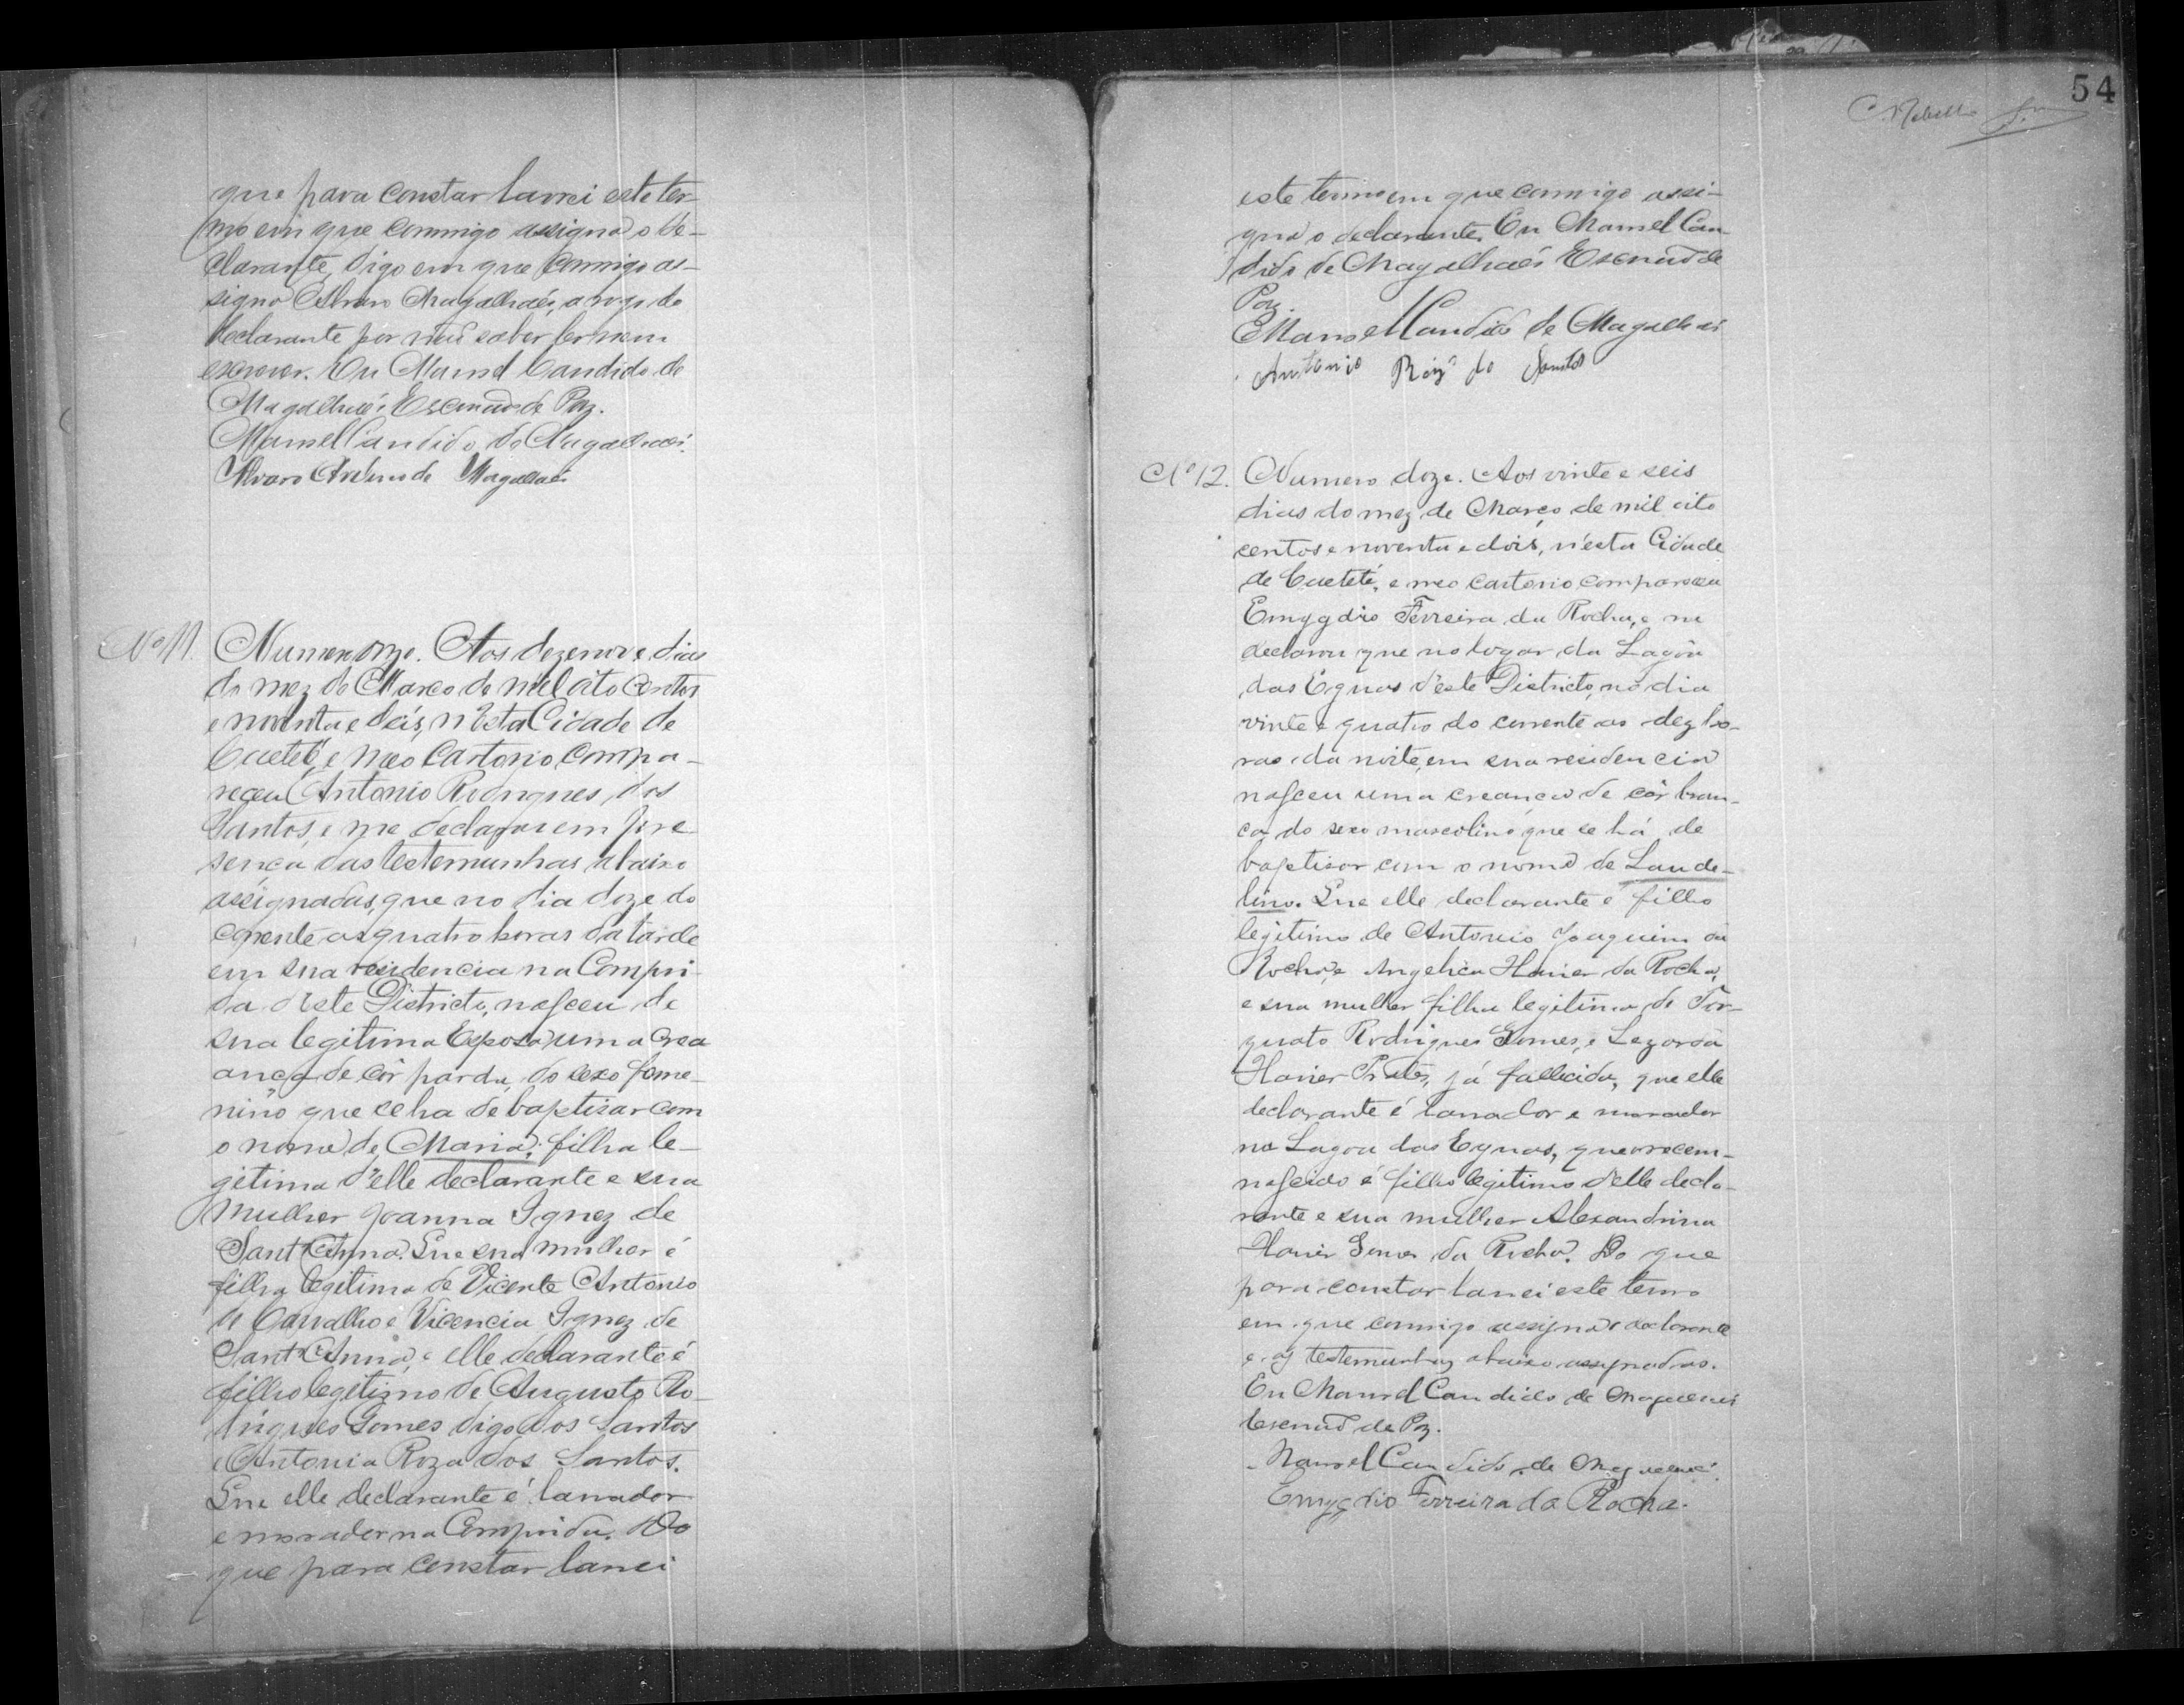 que para constar lavrei este ter-
mo em que commigo assigna o de-
clarante, digo em que commigo as-
signa Alvaro Magalhaẽs, a rogo do
declarante por não saber ler nem
escrever. Eu Manoel Candido de
Magalhaẽs Escrivão de Paz.
Manoel Candido de Magalhaẽs.
Alvaro de Magalhaẽs
Nº 11. Numero onze. Aos dezenove dias
do mez de Março de mil oito centos
e noventa e dois, n'esta Cidade de
Caeteté, e meo Cartorio compa-
receu Antonio Rodrigues dos
Santos, e me declarou em pre-
sença das testemunhas abaixo
assignadas, que no dia doze do
corrente as quatro horas da tarde
em sua residencia na Compri-
da d'este Districto, nasceu de
sua legitima Esposa, uma crea
ança de côr parda, do sexo feme-
nino que se ha de baptisar com
o nome de Maria, filha le-
gitima d'elle declarante e sua
mulher Joanna Ignez de
Sant'Anna. Que sua mulher é
filha legitima de Vicente Antonio
de Carvalho e Vicencia Ignez de
Sant'Anna, e elle declarante é
filho legitimo de Augusto Ro-
drigues Gomes digo dos Santos
e Antonia Roza dos Santos.
Que elle declarante é lavrador
e morador na Comprida. Do
que para constar lavrei
54
C. Rebello
este termo em que commigo assi-
gna o declarante. Eu Manoel Can-
dido de Magalhaẽs Escrivão de
Paz.
Manoel Candido de Magalhaẽs
Antonio Roiz dos Santos
Nº 12. Numero doze. Aos vinte e seis
dias do mez de Março de mil oito
centos e noventa e dois, n'esta Cidade
de Caeteté, e meo cartorio compareceu
Emygdio Ferreira da Rocha, e me
declarou que no logar da Lagôa
das Eguas d'este Districto, no dia
vinte e quatro do corrente as dez ho-
ras da noite, em sua residencia
nasceu uma creança de côr bran-
ca, do sexo mascolino que se há de
baptisar com o nome de Laude-
lino. Que elle declarante é filho
legitimo de Antonio Joaquim da
Rocha, e Angelica Xavier da Rocha,
e sua mulher filha legitima de Tor-
quato Rodrigues Gomes, e
Xavier Prates, já fallecida, que elle
declarante é lavrador e morador
na Lagoa das Eguas, que o recem-
nascido é filho legitimo d'elle decla-
rante e sua mulher Alexandrina
Xavier Gomes da Rocha. Do que
para constar lavrei este termo
em que commigo assigna o declarante
e as testemunhas abaixo assignadas.
Eu Manoel Candido de Magalhaẽs
Escrivão de Paz.
Manoel Candido de Magalhaẽs.
Emygdio Ferreira da Rocha.